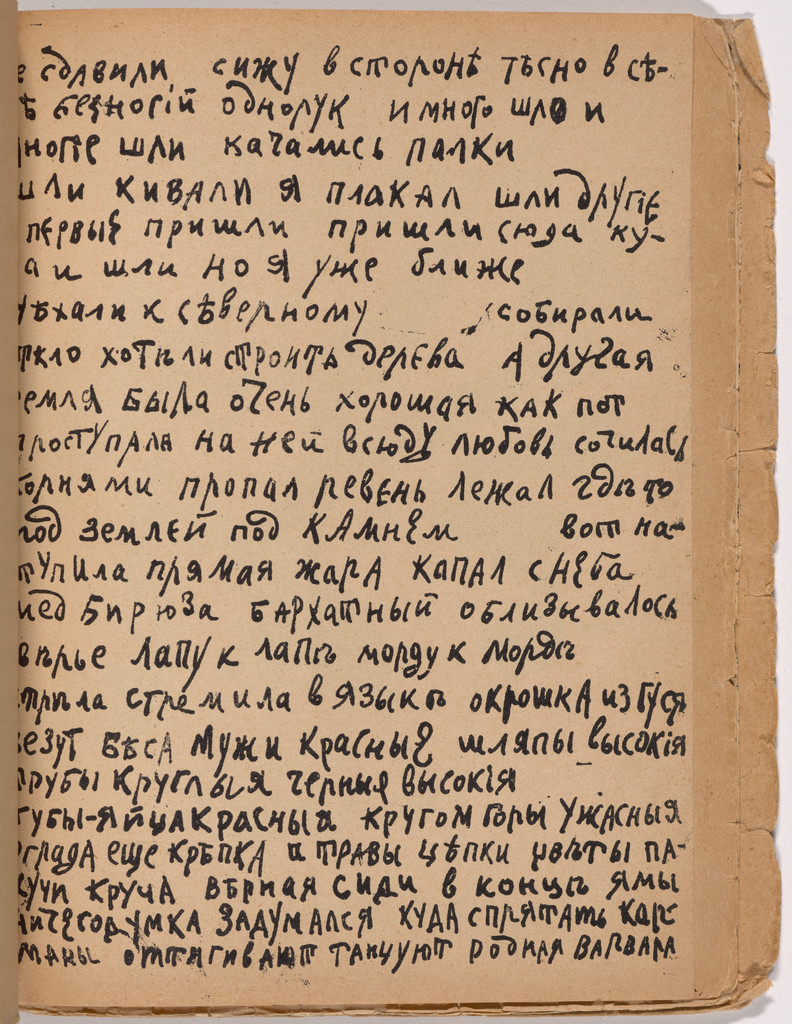 е сдавили сижу в сторонѣ тѣсно в сѣ-
ѣ безногій однорук и много шло и
шли качались палки
шли кивали я плакал шли другіе
первые пришли пришли сюда ку-
а и шли но я уже ближе
уѣхали к сѣверному собирали
хотѣли строить дерева А другая
емля была очень хорошая как пот
проступала на ней всюду любовь сочилась
орнями пропал ревень лежал гдѣ то
под землей под камнем вот на-
тупила прямая жара капал с неба
мед Бирюза бархатный облизывалось
вѣрье лапу к лапѣ морду к мордѣ
трѣла стремила в языкѣ окрошка из гуся
везут бѣса мужи красные шляпы высокія
трубы круглыя черныя высокія
губы-яйца красныя кругом горы ужасныя
ограда еще крѣпка и травы цѣпки цвѣты па-
учи круча вѣрная сиди в концѣ ямы
задумался куда спрятать кар-
маны оттягивают танцуют родная варвара